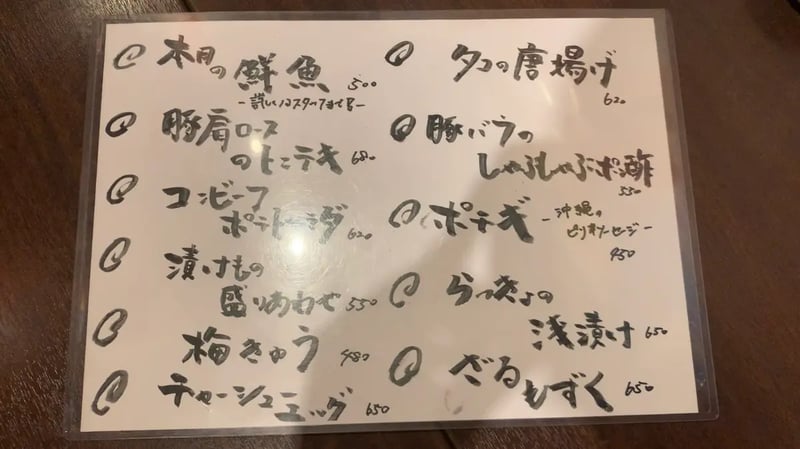 本日の鮮魚 500
豚肩ロース
のトンテキ 680
コンビーフ
ポテトサラダ 620
漬けもの
盛りあわせ 550
梅きゅう 480
チャーシュー
エッグ 650
タコの唐揚げ
620
豚バラの
しゃぶしゃぶポン酢
550
ポチギ -沖縄の
ピリ辛ソーセージ-
450
らっきょの
浅漬け 650
ざる
もずく 650